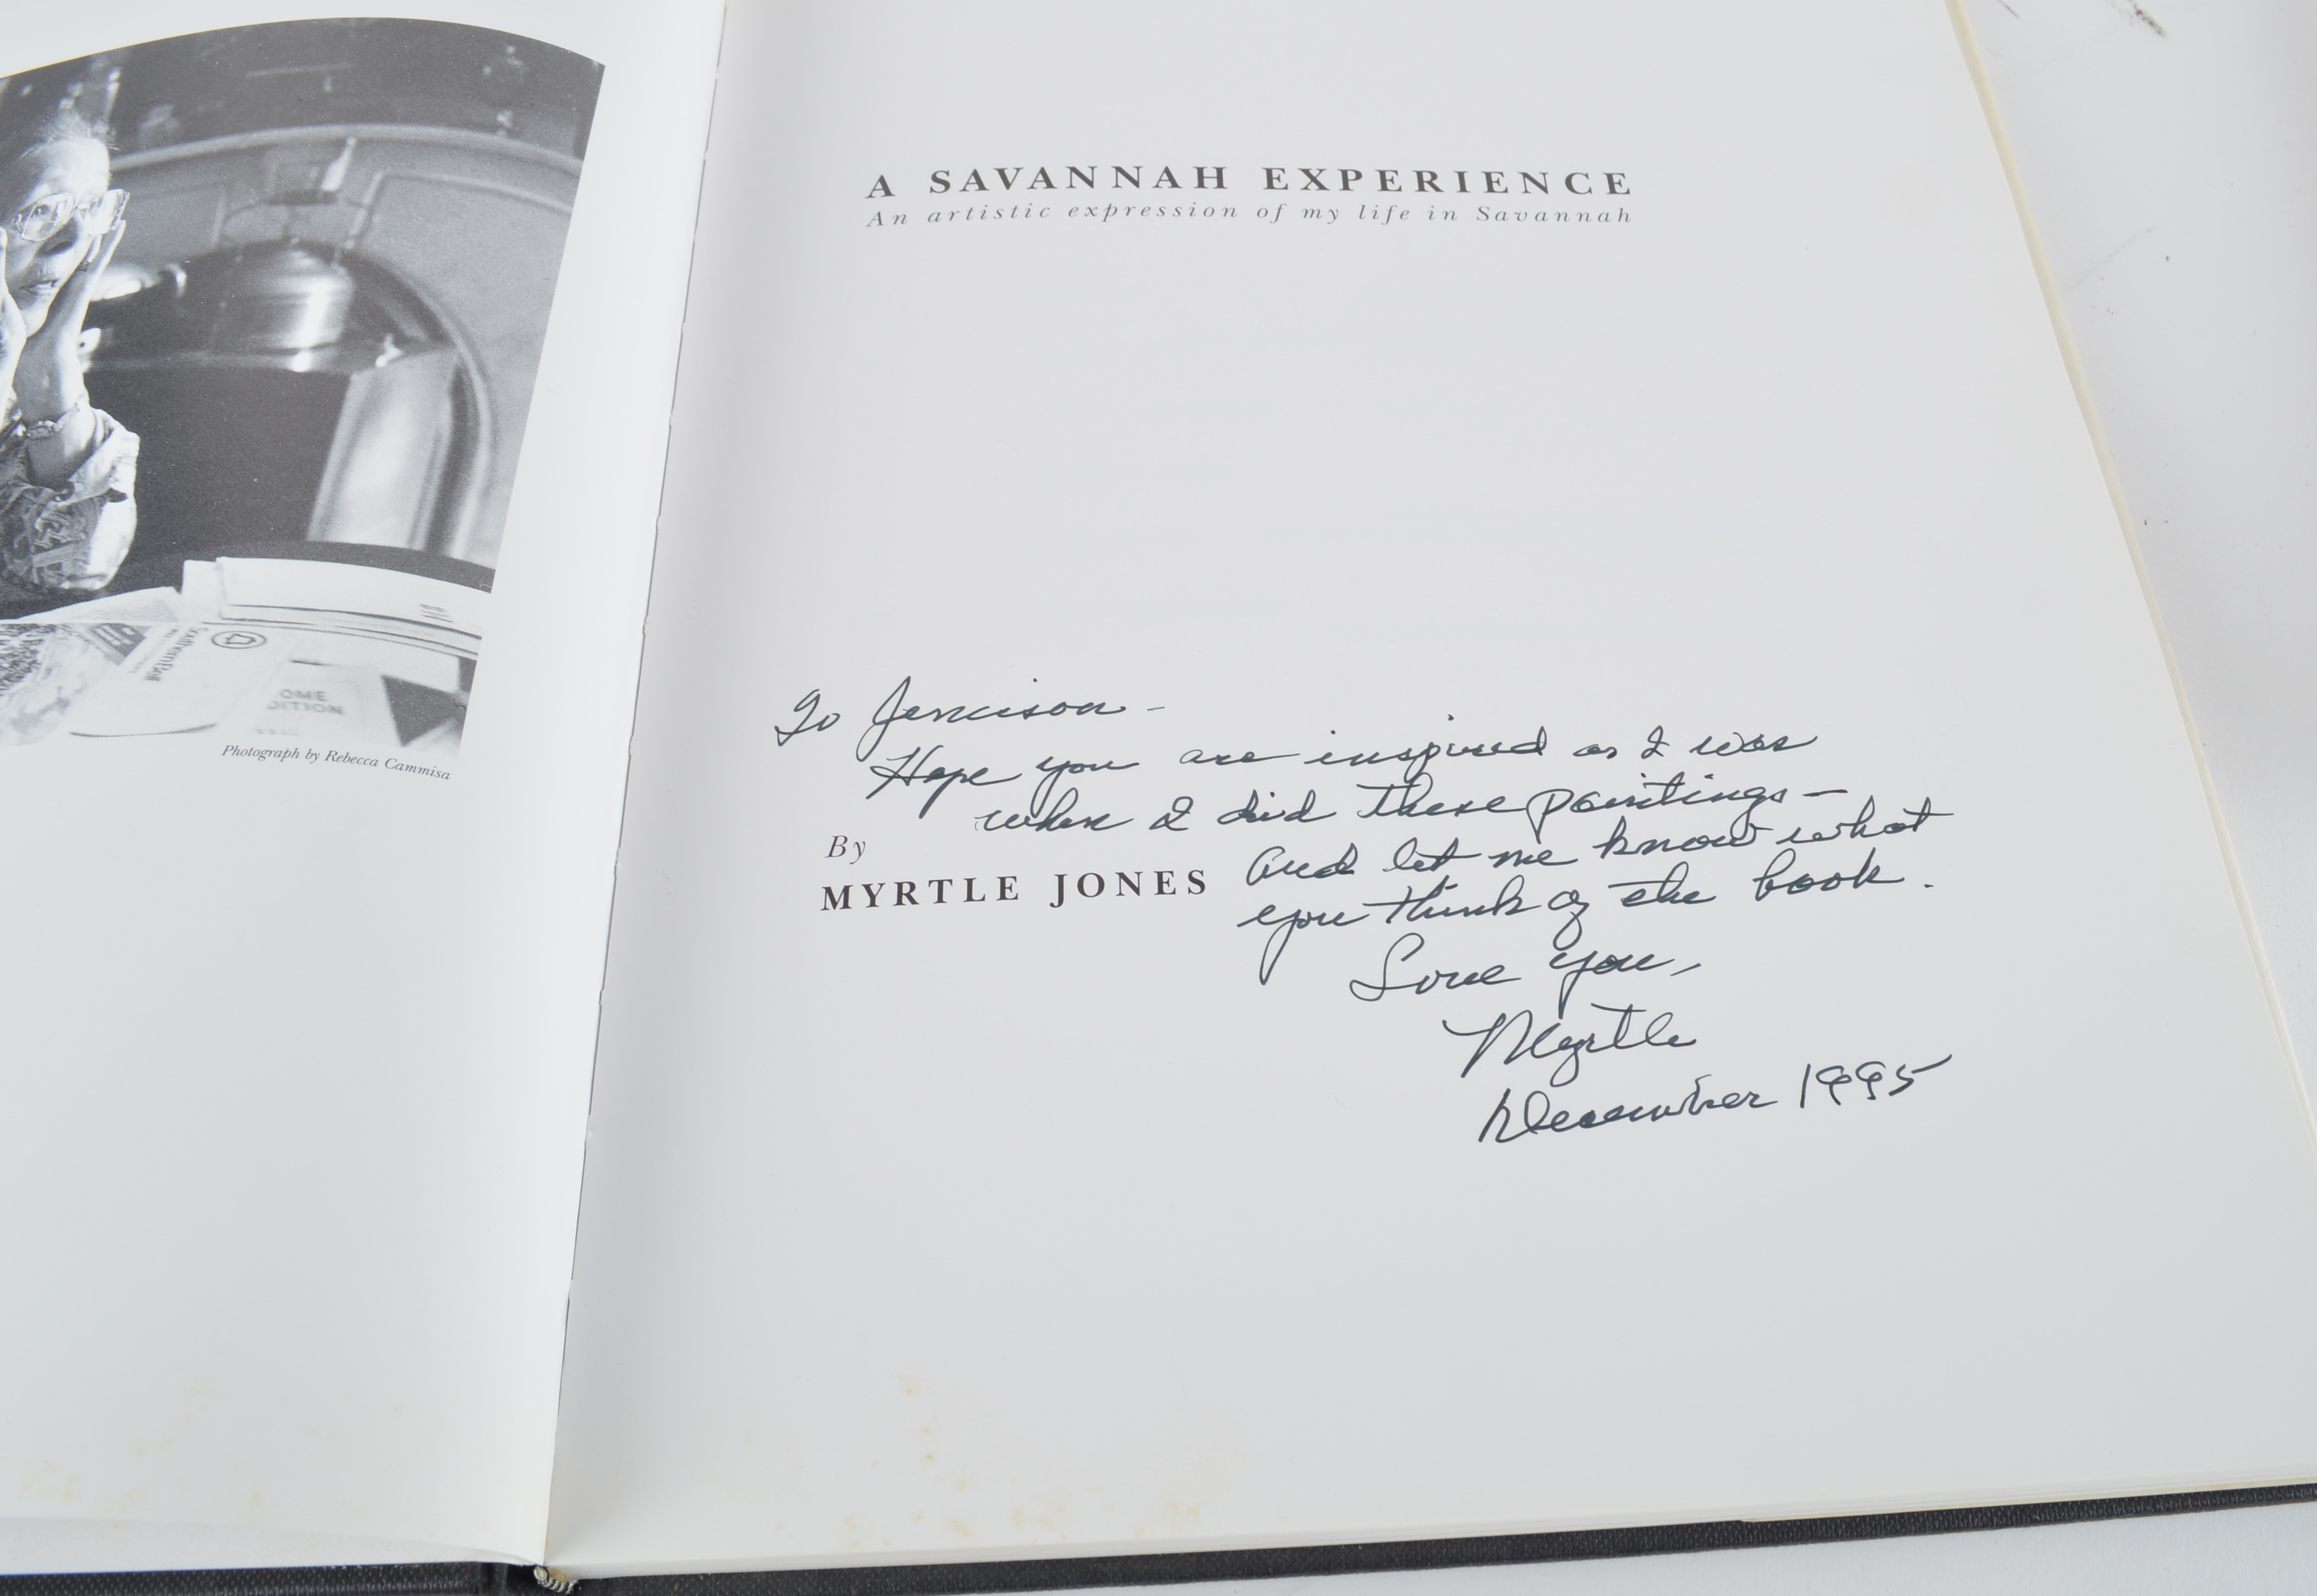 Southern Bell
OME
DITION
Photograph by Rebecca Cammisa
A SAVANNAH EXPERIENCE
An artistic expression of my life in Savannah
To Jennison -
Hope you are inspired as I was
when I did these paintings -
and let me know what
you think of the book.
Love you,
Myrtle
December 1995
By
MYRTLE JONES